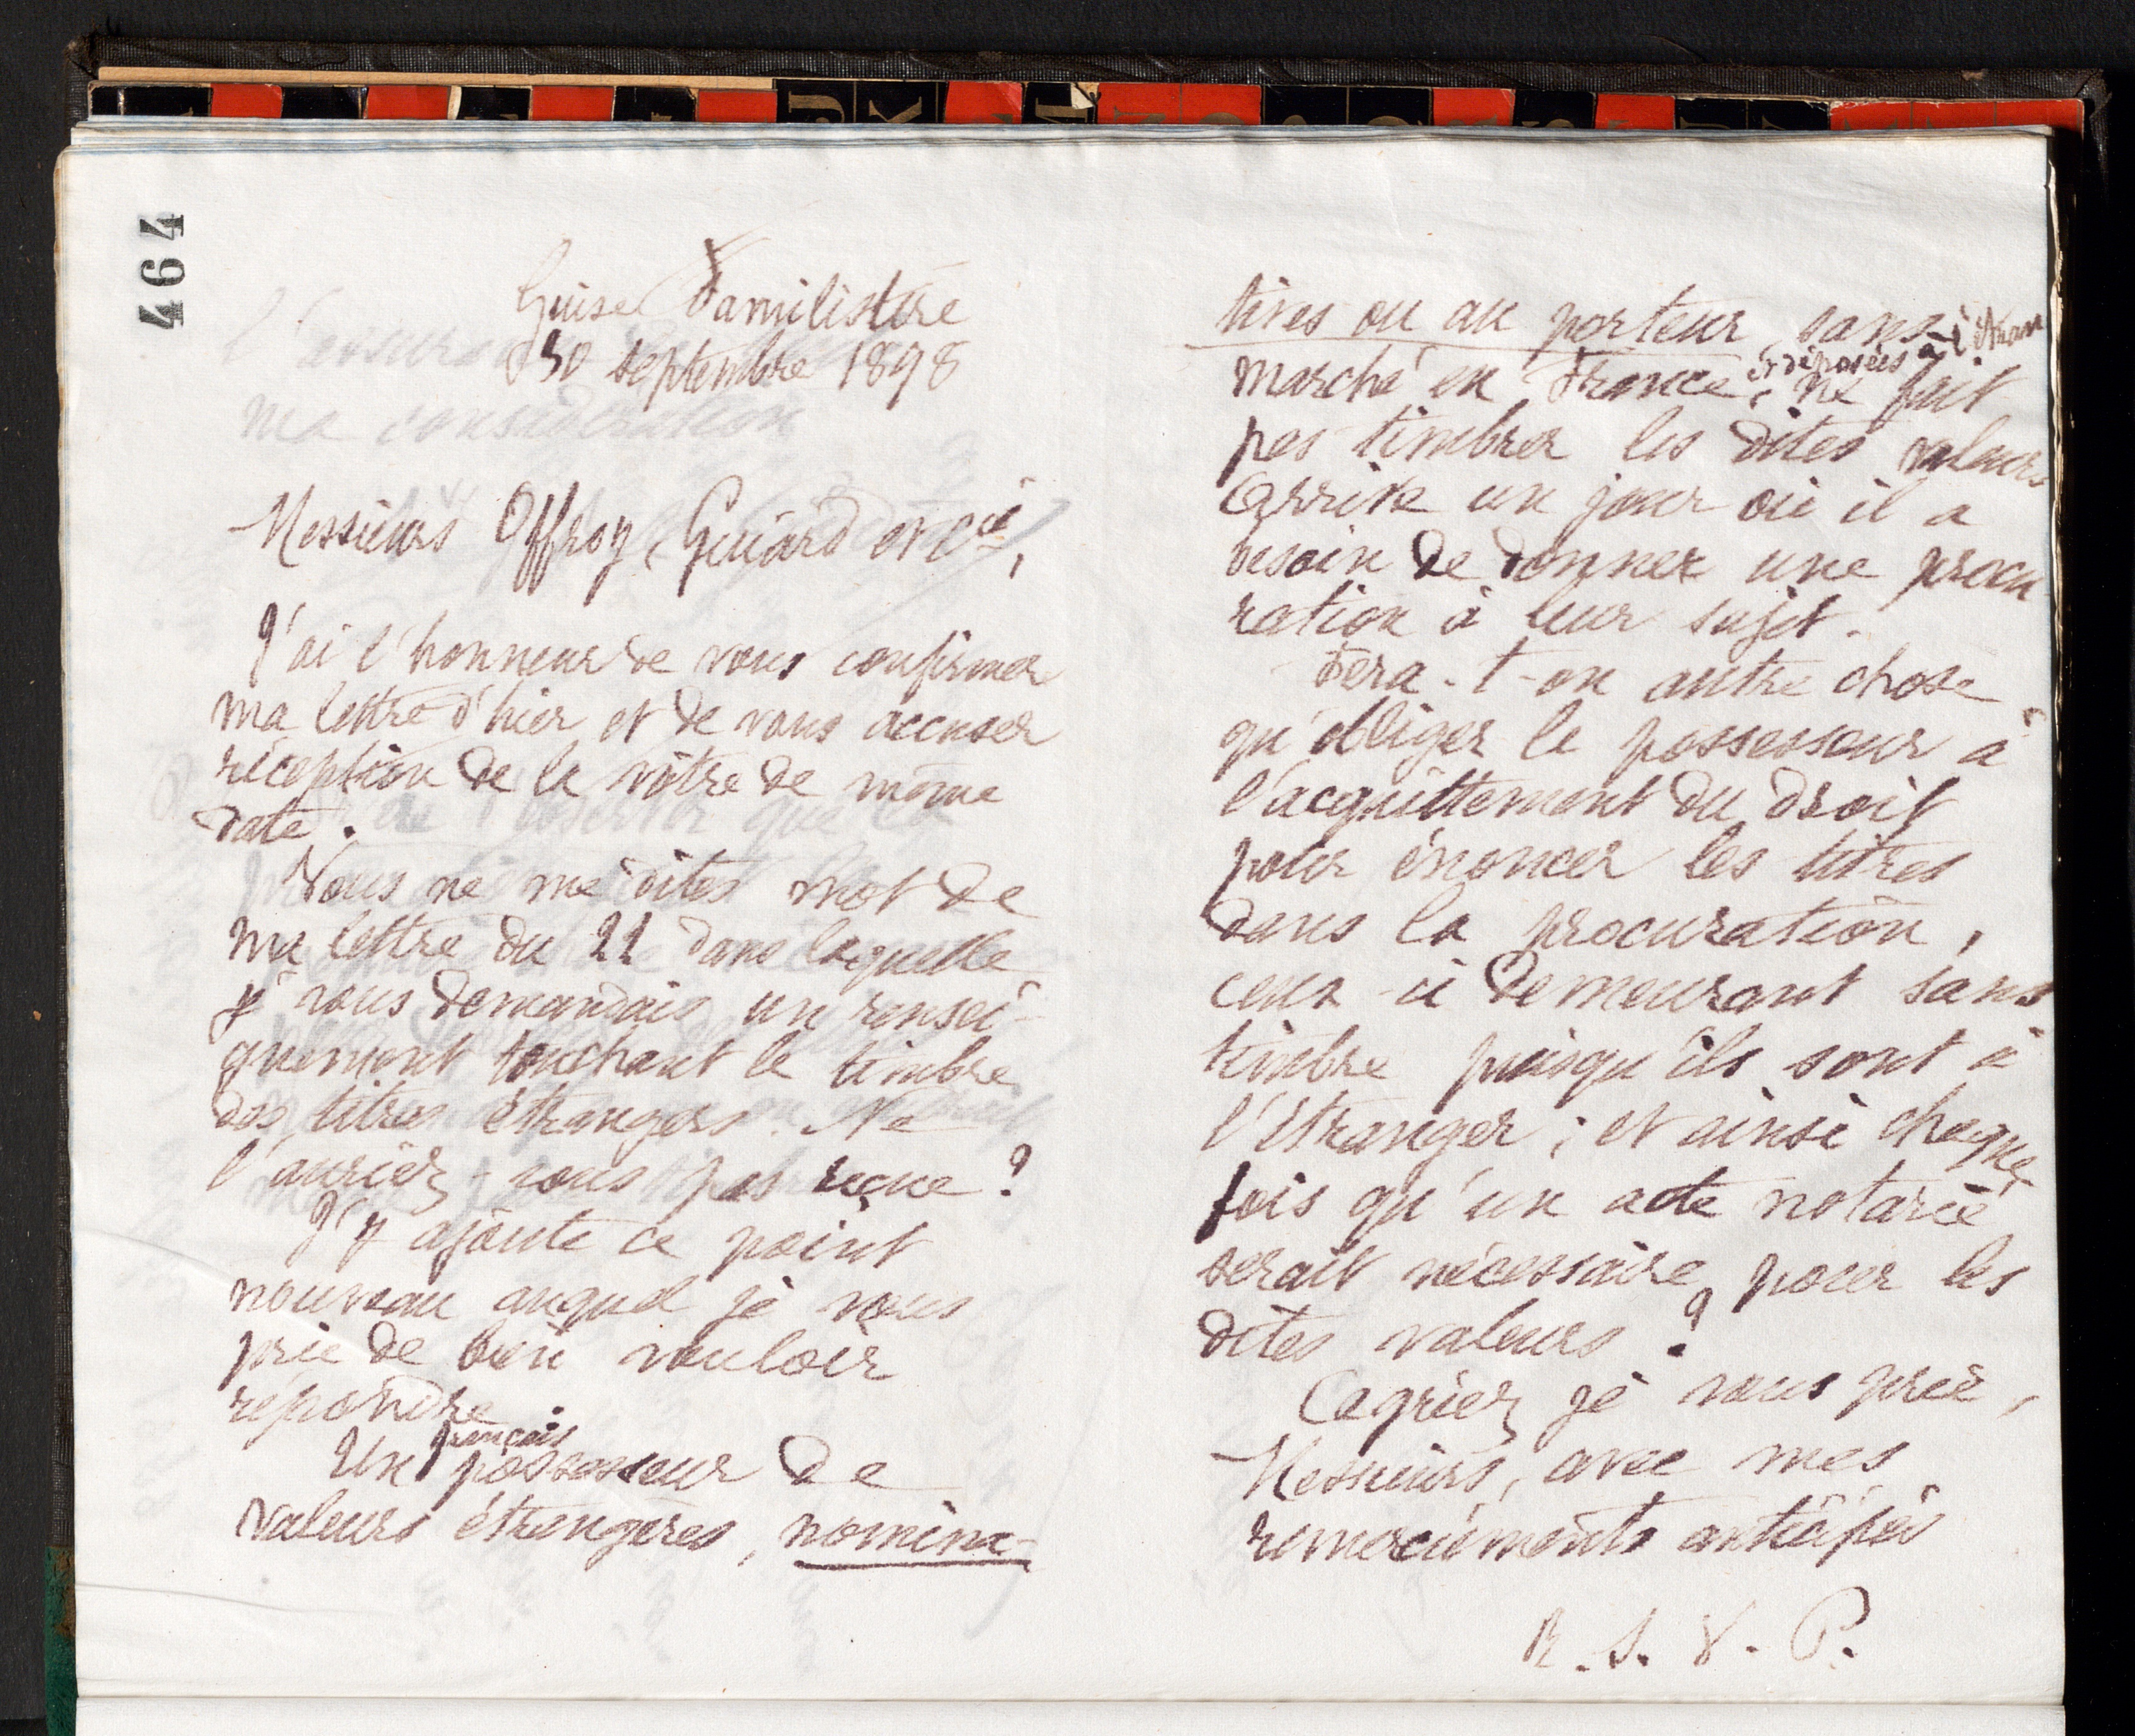 464
Guise Familistère
30 septembre 1898
Messieurs Offroy, Guiard et Cie,
J'ai l'honneur de vous confirmer
ma lettre d'hier et de vous accuser
réception de la vôtre de même
date.
Vous ne me dites mot de
ma lettre du 22 dans laquelle
je vous demandais un rensei-
gnement touchant le timbre
des titres étrangers. Ne
l'auriez-vous pas reçue ?
J'y ajoute ce point
nouveau auquel je vous
prie de bien vouloir
répondre.
Un français possesseur de
valeurs étrangères, nomina-
tives ou au porteur, sans
marché en France, et déposées à l'étran
ne fait
pas timbrer les dites valeurs
Arrive un jour où il a
besoin de donner une procu
ration à leur sujet.
Fera-t-on autre chose
qu'obliger le possesseur à
l'acquittement du droit
pour énoncer les titres
dans la procuration,
ceux-ci demeurant sans
timbre puisqu'ils sont à
l'étranger ; et ainsi chaque
fois qu'un acte notarié
serait nécessaire pour les
dites valeurs ?
Agréez je vous prie,
Messieurs, avec mes
remerciements anticipés
R. S. V. P.